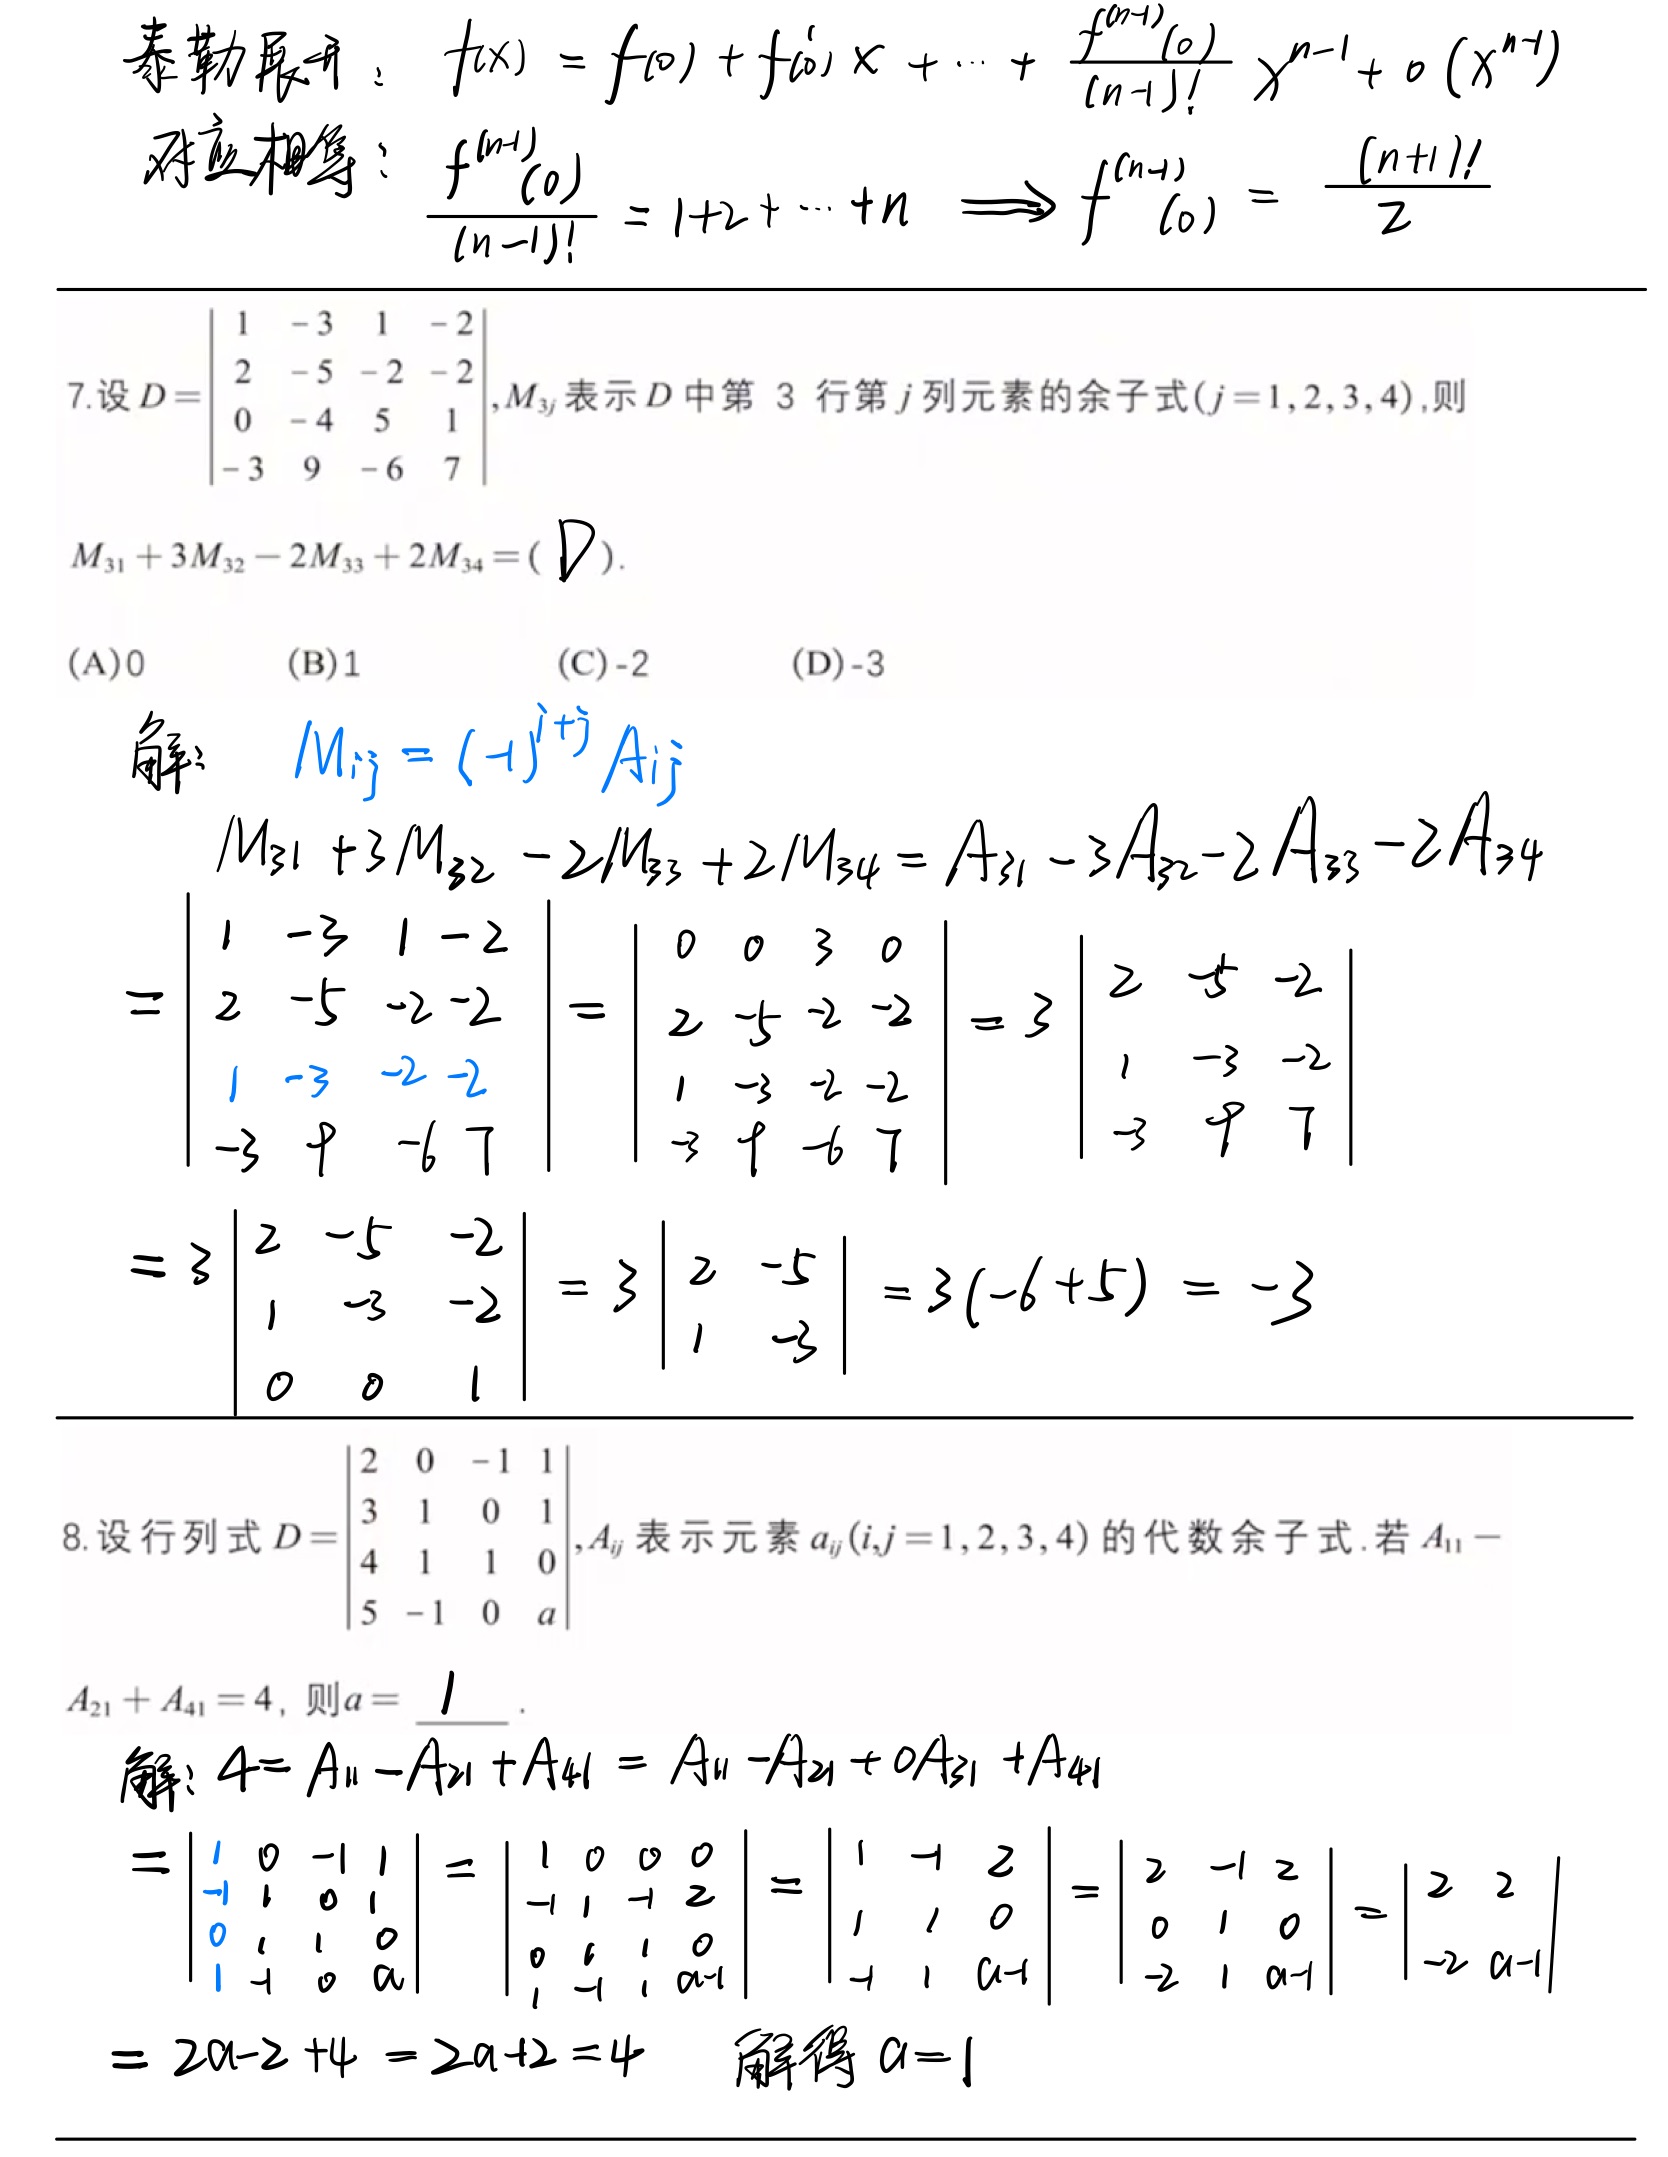 泰勒展开： f(x) = f(0) + f'(0) x + ··· + f^(n-1)(0)/(n-1)! x^(n-1) + o(x^(n-1))
对应相等： f^(n-1)(0)/(n-1)! = 1+2+···+n ⟹ f^(n-1)(0) = (n+1)!/2
7.设 D = | 1 -3 1 -2 |
| 2 -5 -2 -2 |
| 0 -4 5 1 |
| -3 9 -6 7 | ,M₃ⱼ 表示 D 中第 3 行第 j 列元素的余子式(j=1,2,3,4),则
M₃₁+3M₃₂-2M₃₃+2M₃₄=( D ).
(A)0 (B)1 (C)-2 (D)-3
解： Mij = (-1)^(i+j) Aij
M₃₁+3M₃₂-2M₃₃+2M₃₄ = A₃₁-3A₃₂-2A₃₃-2A₃₄
= | 1 -3 1 -2 | = | 0 0 3 0 | = 3 | 2 -5 -2 |
| 2 -5 -2 -2 | | 2 -5 -2 -2 | | 1 -3 -2 |
| 1 -3 -2 -2 | | 1 -3 -2 -2 | | -3 9 7 |
| -3 9 -6 7 | | -3 9 -6 7 |
= 3 | 2 -5 -2 | = 3 | 2 -5 | = 3(-6+5) = -3
| 1 -3 -2 | | 1 -3 |
| 0 0 1 |
8.设行列式 D = | 2 0 -1 1 |
| 3 1 0 1 |
| 4 1 1 0 |
| 5 -1 0 a | ,Aij 表示元素 aij(i,j=1,2,3,4) 的代数余子式.若 A₁₁-
A₂₁+A₄₁=4, 则a= 1 .
解： 4= A₁₁-A₂₁+A₄₁ = A₁₁-A₂₁+0A₃₁+A₄₁
= | 1 0 -1 1 | = | 1 0 0 0 | = | 1 -1 2 | = | 2 -1 2 | = | 2 2 |
| -1 1 0 1 | | -1 1 -1 2 | | 1 1 0 | | 0 1 0 | | -2 a-1 |
| 0 1 1 0 | | 0 1 1 0 | | -1 1 a-1 | | -2 1 a-1 |
| 1 -1 0 a | | 1 -1 1 a-1 |
= 2a-2+4 = 2a+2 = 4 解得 a=1